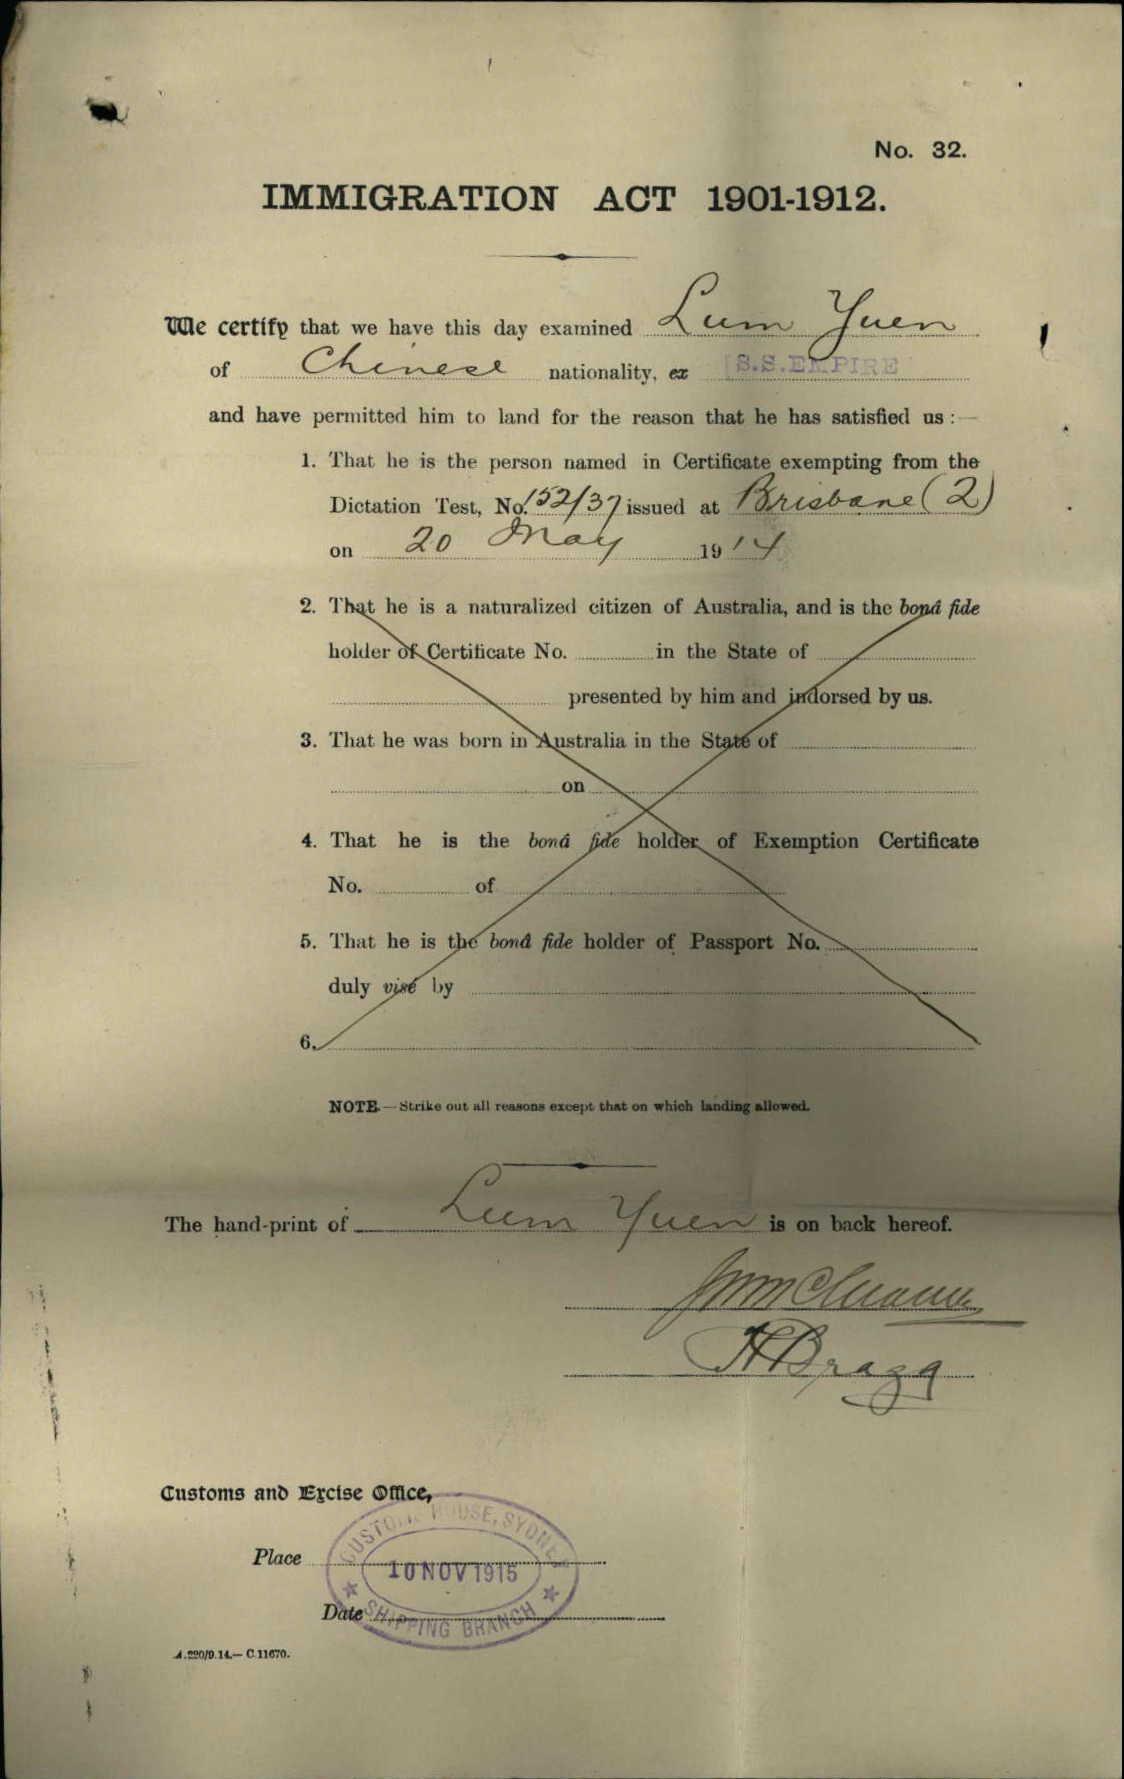 No. 32.
IMMIGRATION ACT 1901-1912.
We certify that we have this day examined Lum Yuen
of Chinese nationality, ex [S.S.EMPIRE]
and have permitted him to land for the reason that he has satisfied us :—
1. That he is the person named in Certificate exempting from the
Dictation Test, No. 152/37 issued at Brisbane (2)
on 20 May 1914
2. That he is a naturalized citizen of Australia, and is the bonâ fide
holder of Certificate No. in the State of
presented by him and indorsed by us.
3. That he was born in Australia in the State of
on
4. That he is the bonâ fide holder of Exemption Certificate
No. of
5. That he is the bonâ fide holder of Passport No.
duly visé by
6.
NOTE.—Strike out all reasons except that on which landing allowed.
The hand-print of Lum Yuen is on back hereof.
H Bragg
Customs and Excise Office,
CUSTOM HOUSE, SYDNEY
Place
10 NOV 1915
Date
SHIPPING BRANCH
A.220/9.14.—C.11670.